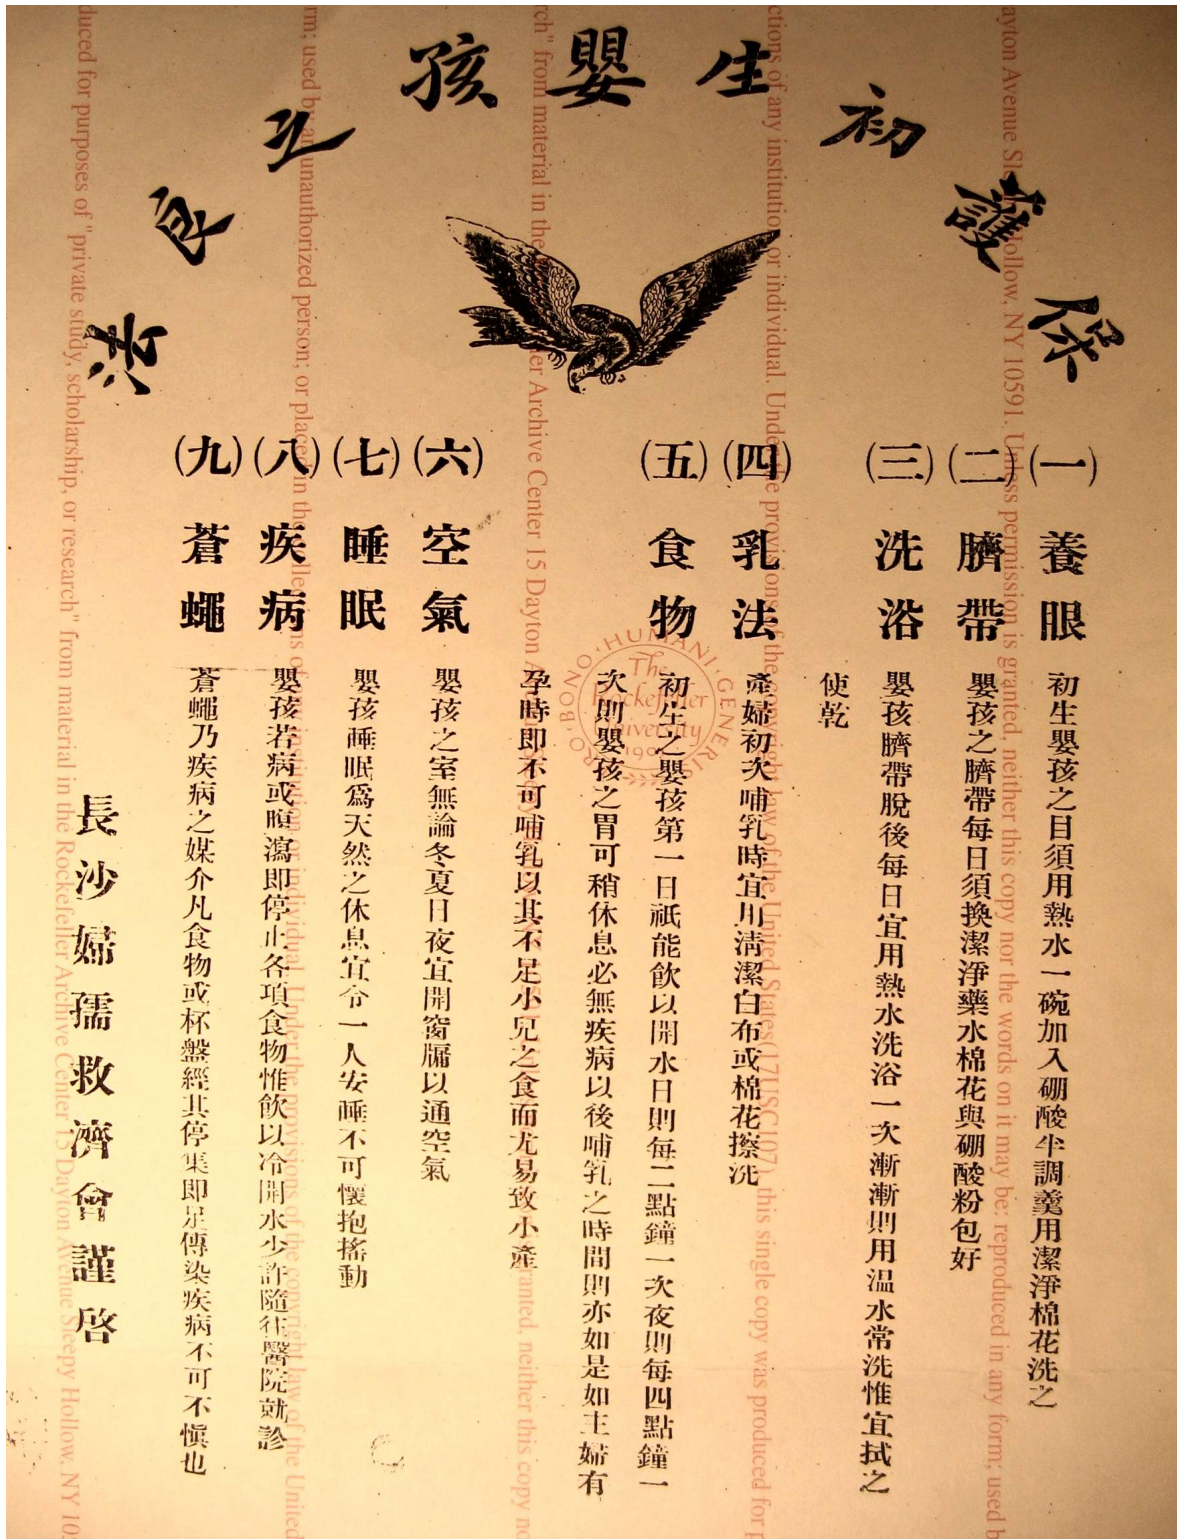 保護初生嬰孩之良法
(一)養眼 初生嬰孩之目須用熱水一碗加入硼酸半調羹用潔淨棉花洗之
(二)臍帶 嬰孩之臍帶每日須換潔淨藥水棉花與硼酸粉包好
(三)洗浴 嬰孩臍帶脫後每日宜用熱水洗浴一次漸漸則用温水常洗惟宜拭之
使乾
(四)乳法 產婦初次哺乳時宜用清潔白布或棉花擦洗
(五)食物 初生之嬰孩第一日祇能飲以開水日則每二點鐘一次夜則每四點鐘一
次則嬰孩之胃可稍休息必無疾病以後哺乳之時間則亦如是如主婦有
孕時即不可哺乳以其不足小兒之食而尤易致小產
(六)空氣 嬰孩之室無論冬夏日夜宜開窗牖以通空氣
(七)睡眠 嬰孩睡眠爲天然之休息宜令一人安睡不可懷抱搖動
(八)疾病 嬰孩若病或腹瀉即停止各項食物惟飲以冷開水少許隨往醫院就診
(九)蒼蠅 蒼蠅乃疾病之媒介凡食物或杯盤經其停集即足傳染疾病不可不愼也
長沙婦孺救濟會謹啓
ayton Avenue Sleepy Hollow, NY 10591. Unless permission is granted, neither this copy nor the words on it may be: reproduced in any form; used b
ctions of any institution or individual. Under the provisions of the copyright law of the United States(17USC107), this single copy was produced for p
rch" from material in the Rockefeller Archive Center 15 Dayton A granted, neither this copy no
rm; used by an unauthorized person; or placed in the collections of any institution or individual. Under the provisions of the copyright law of the United
duced for purposes of "private study, scholarship, or research" from material in the Rockefeller Archive Center 15 Dayton Avenue Sleepy Hollow, NY 105
PRO·BONO·HUMANI·GENERIS
The
Rockefeller
University